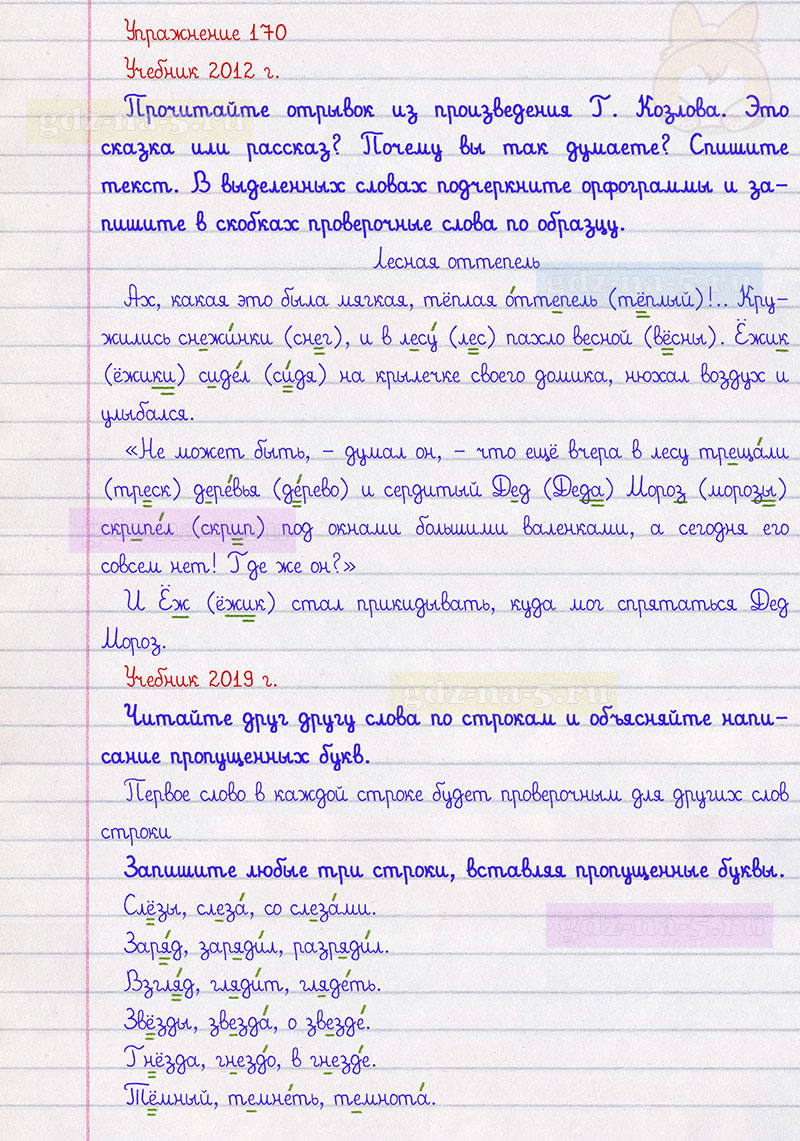 Упражнение 170
Учебник 2012 г.
Прочитайте отрывок из произведения Г. Козлова. Это
сказка или рассказ? Почему вы так думаете? Спишите
текст. В выделенных словах подчеркните орфограммы и за-
пишите в скобках проверочные слова по образцу.
Лесная оттепель
Ах, какая это была мягкая, тёплая о́ттепель (тёплый)!.. Кру-
жились снежи́нки (снег), и в лесу́ (лес) пахло весной (вёсны). Ёжик
(ёжики) сиде́л (си́дя) на крылечке своего домика, нюхал воздух и
улыбался.
«Не может быть, – думал он, – что ещё вчера в лесу треща́ли
(треск) дере́вья (де́рево) и сердитый Дед (Деда) Мороз (морозы)
скрипе́л (скрип) под окнами большими валенками, а сегодня его
совсем нет! Где же он?»
И Ёж (ёжик) стал прикидывать, куда мог спрятаться Дед
Мороз.
Учебник 2019 г.
Читайте друг другу слова по строкам и объясняйте напи-
сание пропущенных букв.
Первое слово в каждой строке будет проверочным для других слов
строки
Запишите любые три строки, вставляя пропущенные буквы.
Слёзы, слеза́, со слеза́ми.
Заря́д, заряди́л, разряди́л.
Взгля́д, гляди́т, гляде́ть.
Звёзды, звезда́, о звезде́.
Гнёзда, гнездо́, в гнезде́.
Тёмный, темне́ть, темнота́.
gdz-na-5.ru
gdz-na-5.ru
gdz-na-5.ru
gdz-na-5.ru
gdz-na-5.ru